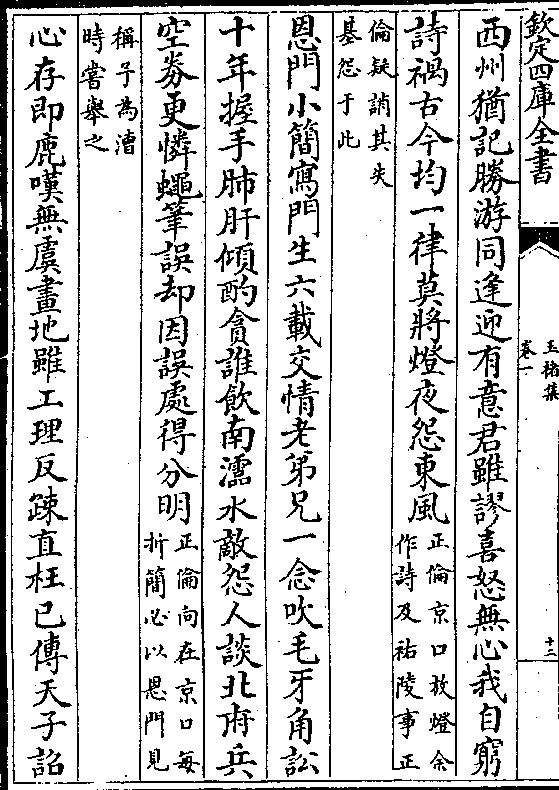 欽定四庫全書
玉楮集
卷一
十二
西州猶記勝游同逢迎有意君雖謬喜怒無心我自窮
詩禍古今均一律莫將燈夜怨東風
正倫京口放燈余
作詩及祐陵事正
倫疑誚其失
基怨于此
恩門小簡寫門生六載交情老弟兄一念吹毛牙角訟
十年握手肺肝傾酌貪誰飲南濡水敵怨人談北府兵
空券更憐蠅筆誤却因誤處得分明
正倫向在京口每
折簡必以恩門見
稱予為漕
時嘗舉之
心存即鹿嘆無虞畫地雖工理反疎直枉已傳天子詔